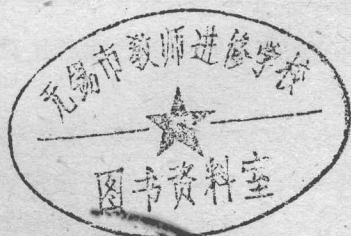 无锡市教师进修学校
图书资料室